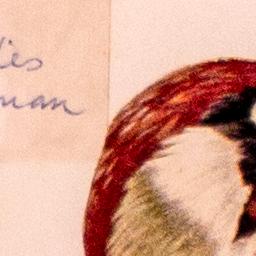 ies
man